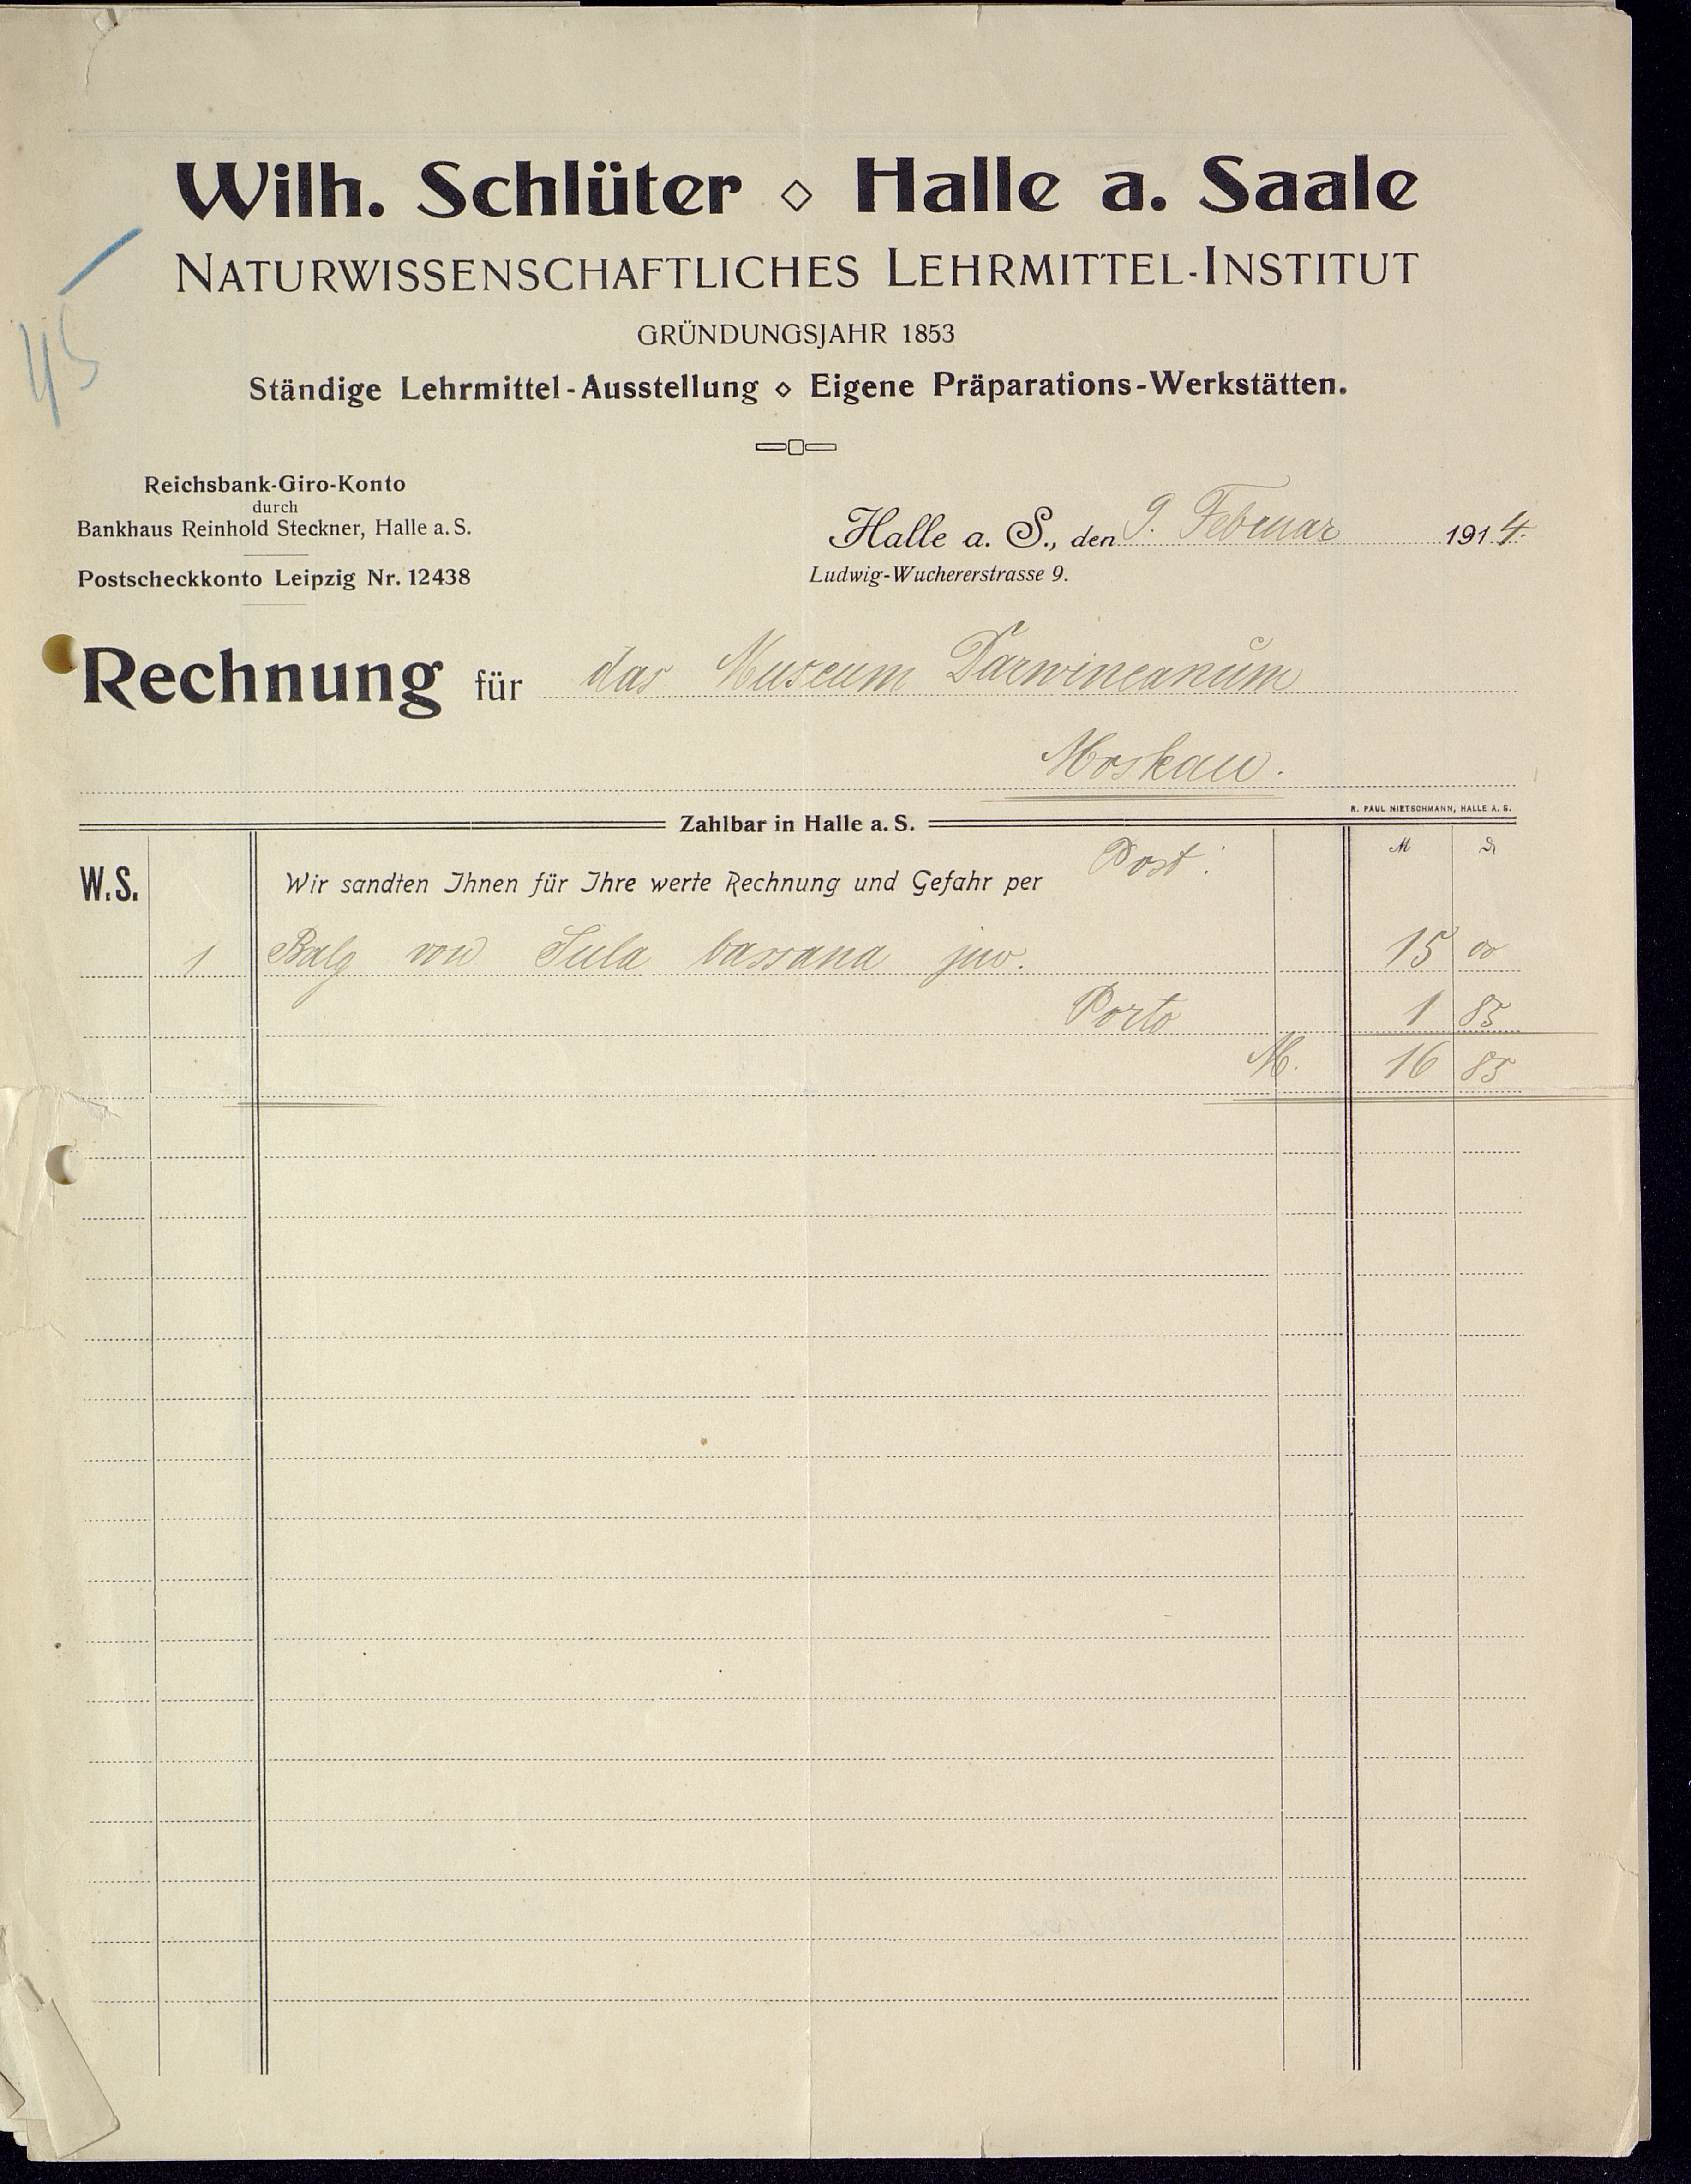 Wilh. Schlüter ◇ Halle a. Saale
NATURWISSENSCHAFTLICHES LEHRMITTEL-INSTITUT
GRÜNDUNGSJAHR 1853
Ständige Lehrmittel-Ausstellung ◇ Eigene Präparations-Werkstätten.
45
Reichsbank-Giro-Konto
durch
Bankhaus Reinhold Steckner, Halle a. S.
Postscheckkonto Leipzig Nr. 12438
Halle a. S., den 9. Februar 1914.
Ludwig-Wuchererstrasse 9.
Rechnung für das Museum Darwineanum
Moskau.
R. PAUL NIETSCHMANN, HALLE A. S.
Zahlbar in Halle a. S.
M ₰
W.S. Wir sandten Ihnen für Ihre werte Rechnung und Gefahr per Post:
1 Balg von Sula bassana juv. 15 00
Porto 1 85
M. 16 85